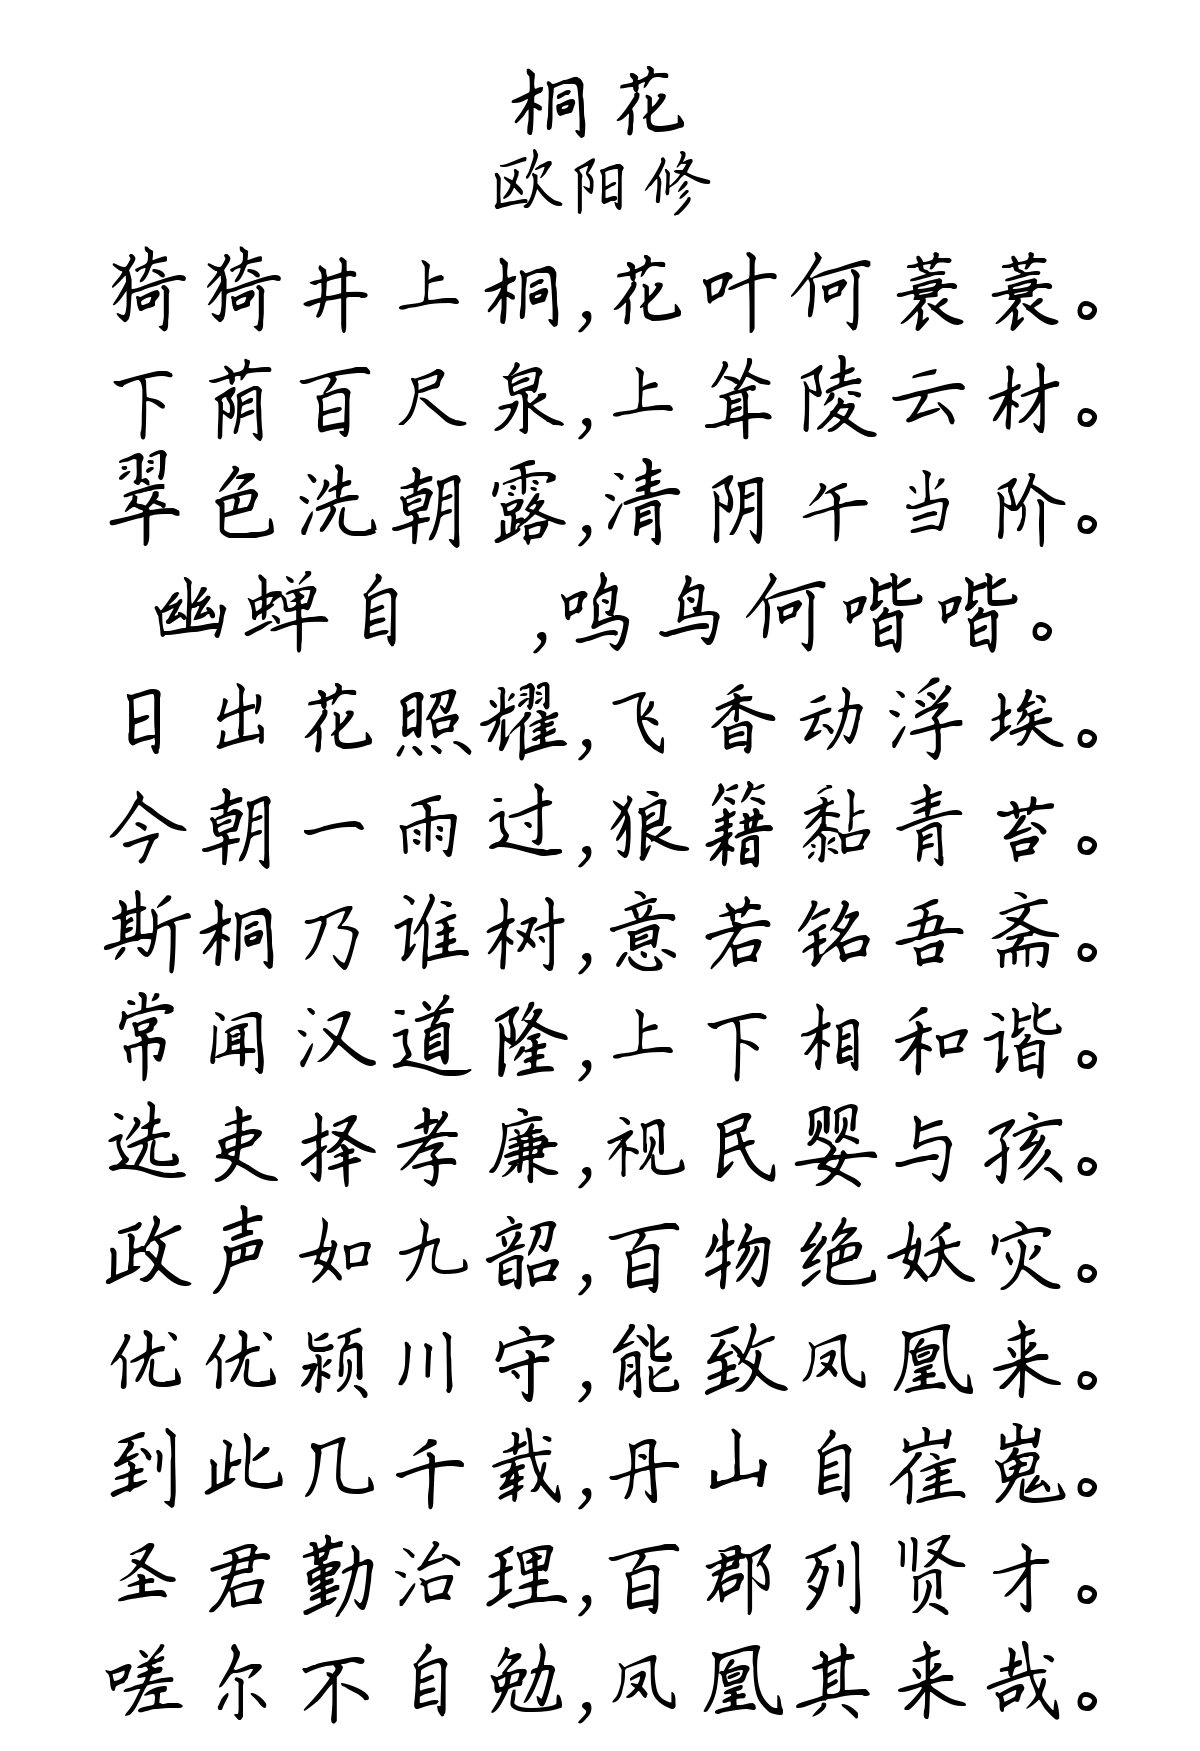 桐花
欧阳修
猗猗井上桐,花叶何蓑蓑。
下荫百尺泉,上耸陵云材。
翠色洗朝露,清阴午当阶。
幽蝉自 ,鸣鸟何喈喈。
日出花照耀,飞香动浮埃。
今朝一雨过,狼籍黏青苔。
斯桐乃谁树,意若铭吾斋。
常闻汉道隆,上下相和谐。
选吏择孝廉,视民婴与孩。
政声如九韶,百物绝妖灾。
优优颍川守,能致凤凰来。
到此几千载,丹山自崔嵬。
圣君勤治理,百郡列贤才。
嗟尔不自勉,凤凰其来哉。